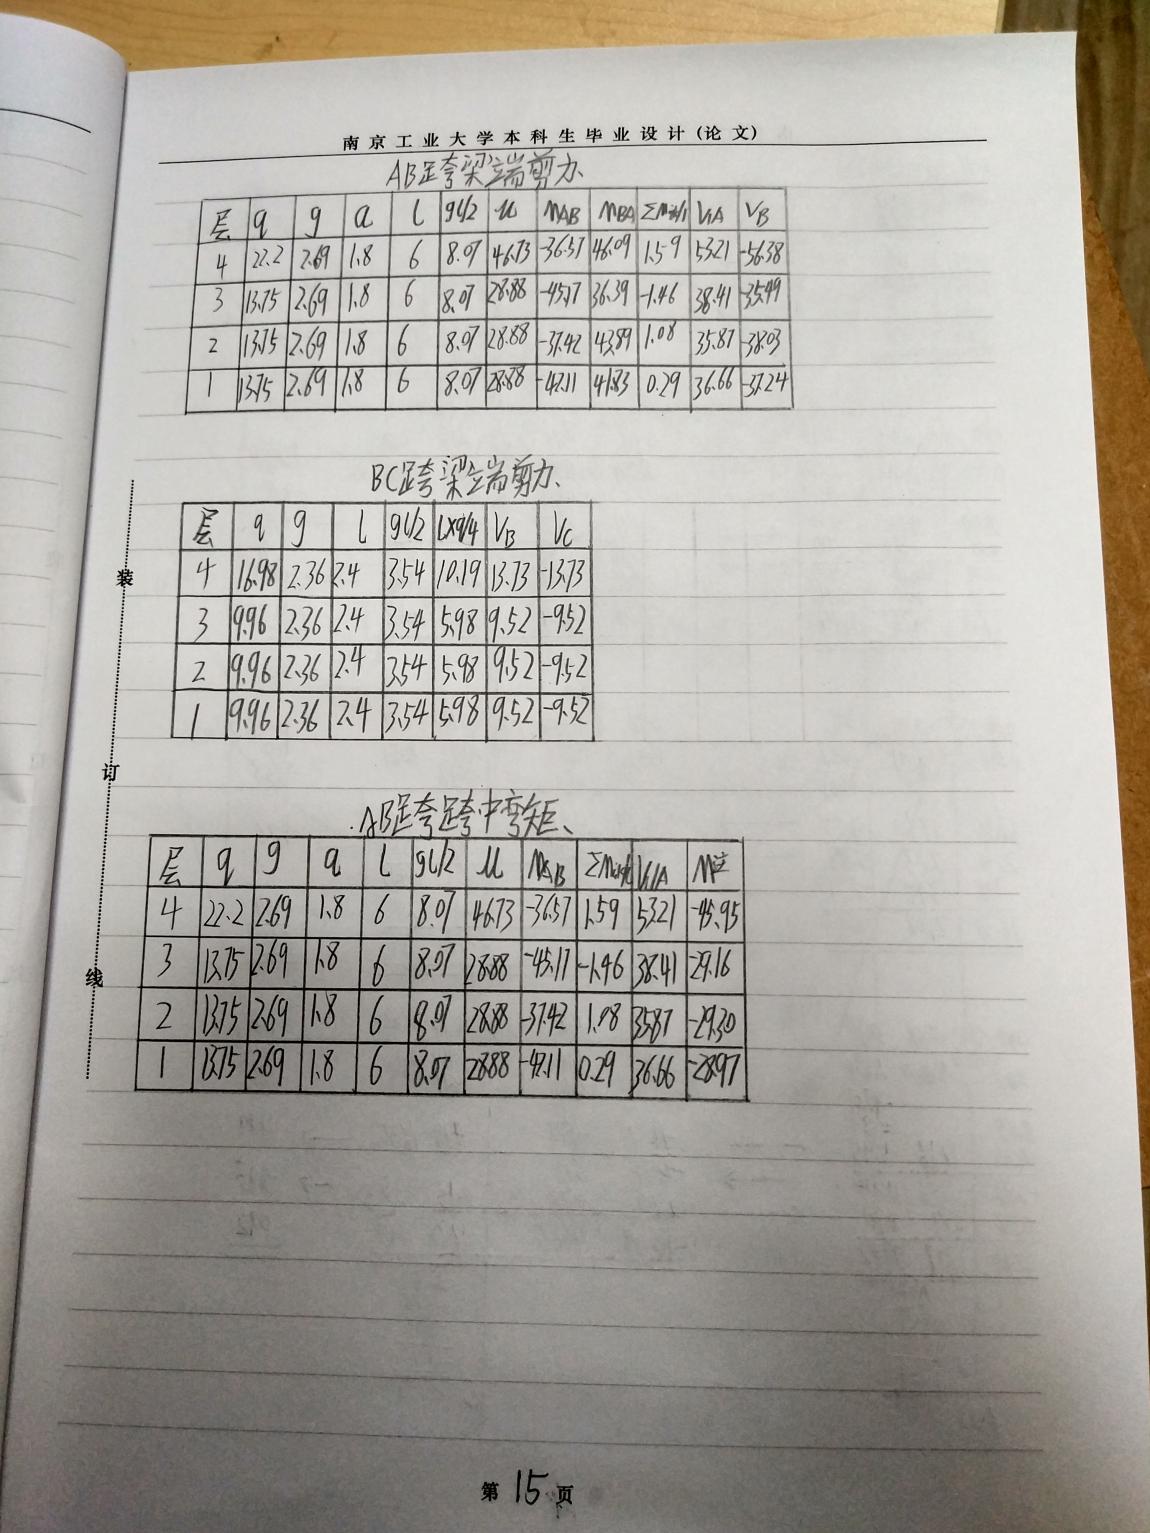 南京工业大学本科生毕业设计(论文)
AB跨梁端剪力
层 q g a l gl/2 u MAB MBA ΣMik/l V1/A VB
4 22.2 2.69 1.8 6 8.07 46.73 -36.57 46.09 1.59 53.21 -56.38
3 13.75 2.69 1.8 6 8.07 28.88 -45.17 36.39 -1.46 38.41 -35.49
2 13.75 2.69 1.8 6 8.07 28.88 -37.42 43.89 1.08 35.87 -38.03
1 13.75 2.69 1.8 6 8.07 28.88 -42.11 41.83 0.29 36.66 -37.24
BC跨梁端剪力
层 q g l gl/2 l×q/4 VB VC
4 16.98 2.36 2.4 3.54 10.19 13.73 -13.73
3 9.96 2.36 2.4 3.54 5.98 9.52 -9.52
2 9.96 2.36 2.4 3.54 5.98 9.52 -9.52
1 9.96 2.36 2.4 3.54 5.98 9.52 -9.52
AB跨跨中弯矩
层 q g a l gl/2 u MAB ΣMik/l V1/A M
4 22.2 2.69 1.8 6 8.07 46.73 -36.57 1.59 53.21 -45.95
3 13.75 2.69 1.8 6 8.07 28.88 -45.17 -1.46 38.41 -29.16
2 13.75 2.69 1.8 6 8.07 28.88 -37.42 1.08 35.87 -29.30
1 13.75 2.69 1.8 6 8.07 28.88 -42.11 0.29 36.66 -28.97
装
订
线
第15页